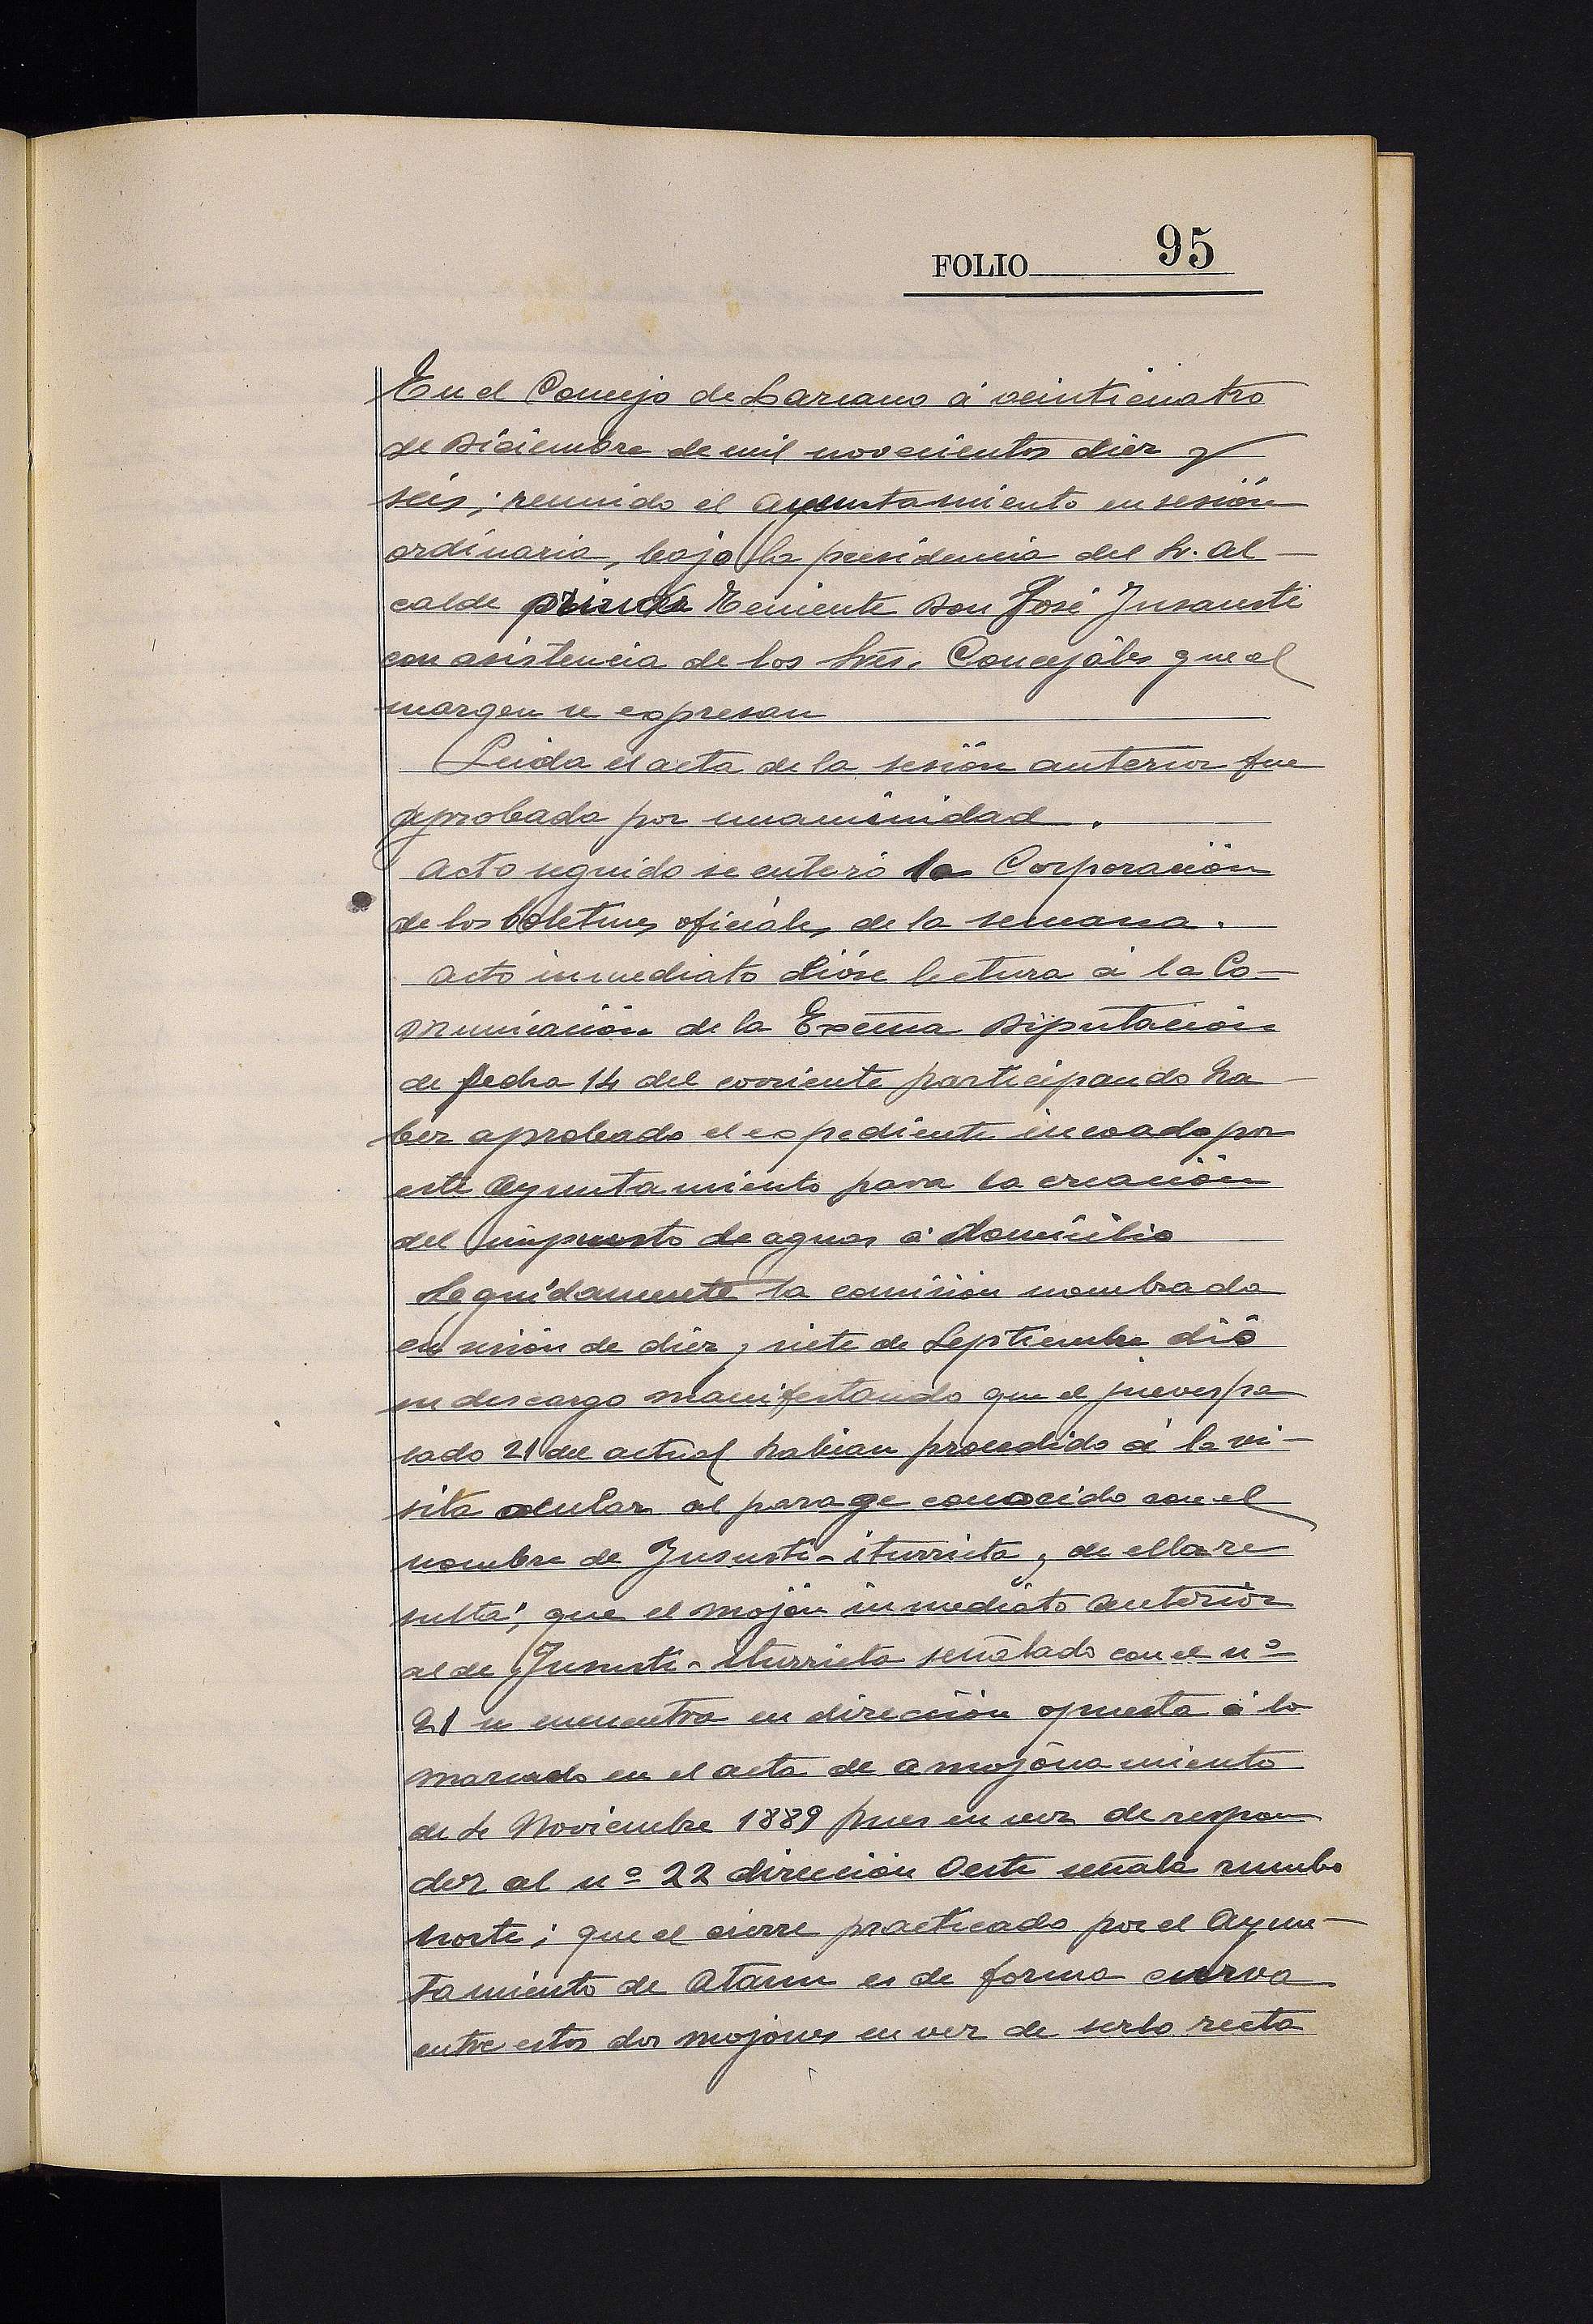 FOLIO 95
En el Concejo de Lazcano á veinticuatro
de Diciembre de mil novecientos diez y
seis; reunido el Ayuntamiento en sesión
ordinaria, bajo la presidencia del Sr. Al-
calde primer Teniente Don José Insausti
con asistencia de los Sres. Concejáles que al
margen se expresan
Leida el acta de la sesión anterior fue
aprobada por unanimidad.
Acto seguido se enteró la Corporación
de los boletines oficiales de la semana.
Acto inmediato dióse lectura á la Co-
municación de la Excma Diputación
de fecha 14 del corriente participando ha-
ber aprobado el expediente incoado por
este Ayuntamiento para la creación
del impuesto de aguas á domicilio
Seguidamente la comisión nombrada
en sesión de diez y siete de Septiembre dió
su descargo manifestando que el jueves pa
sado 21 del actual habian procedido á la vi-
sita ocular al parage conocido con el
nombre de Jususti-iturrieta y de ella re
sulta; que el mojón inmediato anterior
al de Jususti-iturrieta señalado con el nº
21 se encuentra en dirección opuesta á lo
marcado en el acta de amojónamiento
de 4 Noviembre 1889 pues en vez de respon
der al nº 22 dirección Oeste señala rumbo
Norte; que el cierre practicado por el Ayun-
tamiento de Ataun es de forma curva
entre estos dos mojones en vez de serlo recta